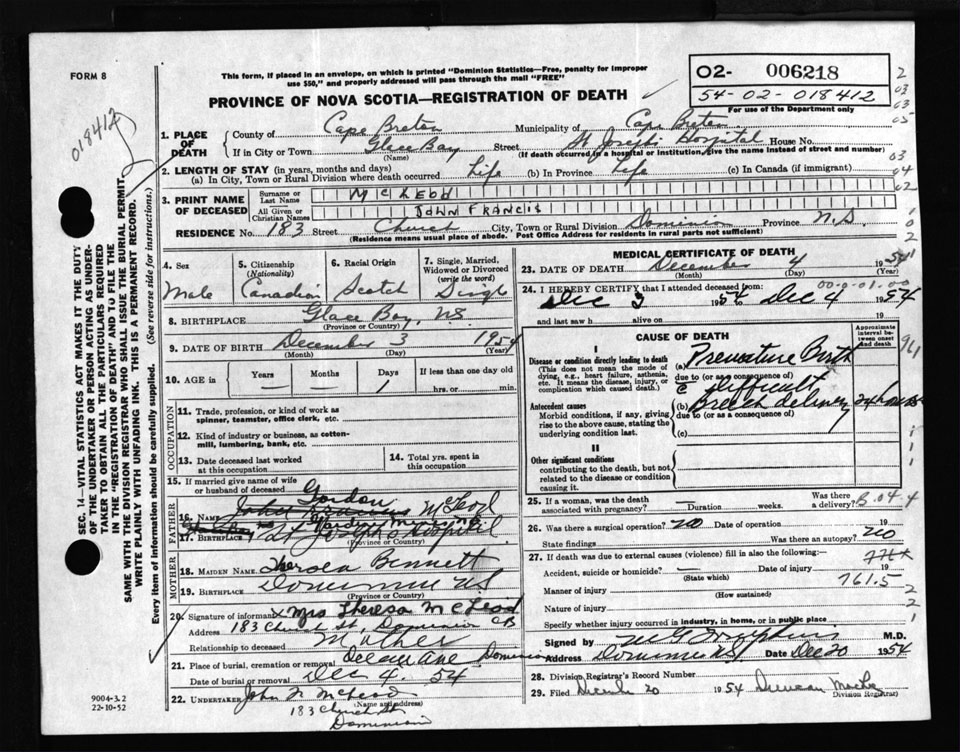 FORM 8
This form, if placed in an envelope, on which is printed "Dominion Statistics—Free, penalty for improper
use $50," and properly addressed will pass through the mail "FREE"
PROVINCE OF NOVA SCOTIA—REGISTRATION OF DEATH
02- 006218
54-02-018412
For use of the Department only
018412
1. PLACE OF DEATH
County of Cape Breton Municipality of Cape Breton
If in City or Town Glace Bay Street St Josephs Hospital House No.
(Name) (If death occurred in a hospital or institution, give the name instead of street and number)
2. LENGTH OF STAY (in years, months and days)
(a) In City, Town or Rural Division where death occurred Life (b) In Province Life (c) In Canada (if immigrant)
3. PRINT NAME OF DECEASED
Surname or Last Name McLEOD
All Given or Christian Names JOHN FRANCIS
RESIDENCE No. 183 Street Church City, Town or Rural Division Dominion Province N.S.
(Residence means usual place of abode. Post Office Address for residents in rural parts not sufficient)
4. Sex Male
5. Citizenship (Nationality) Canadian
6. Racial Origin Scotch
7. Single, Married, Widowed or Divorced (write the word) Single
8. BIRTHPLACE Glace Bay, N.S.
(Province or Country)
9. DATE OF BIRTH December 3 1954
(Month) (Day) (Year)
10. AGE in Years Months Days If less than one day old
— — 1 hrs. or min.
OCCUPATION
11. Trade, profession, or kind of work as
spinner, teamster, office clerk, etc.
12. Kind of industry or business, as cotton-
mill, lumbering, bank, etc.
13. Date deceased last worked
at this occupation
14. Total yrs. spent in
this occupation
15. If married give name of wife
or husband of deceased
FATHER
Gordon
16. NAME John Francis McLeod
17. Birthplace St Joseph's Hospital
(Province or Country)
MOTHER
18. MAIDEN NAME Theresa Bennett
19. BIRTHPLACE Dominion NS
(Province or Country)
20. Signature of informant x Mrs Theresa McLeod
Address 183 Church St, Dominion CB
Relationship to deceased Mother
21. Place of burial, cremation or removal Ave Dominion
Date of burial or removal Dec 4. 54
22. UNDERTAKER John N McLeod
(Name and address)
183 Church St
Dominion
MEDICAL CERTIFICATE OF DEATH
23. DATE OF DEATH December 4 1954
(Month) (Day) (Year)
24. I HEREBY CERTIFY that I attended deceased from:
00-0-01-00
Dec 3 1954 to Dec 4 1954
and last saw h alive on 19
CAUSE OF DEATH
Approximate interval between onset and death
I
Disease or condition directly leading to death
(This does not mean the mode of
dying, e.g., heart failure, asthenia,
etc. It means the disease, injury, or
complication which caused death.)
(a) Premature Birth
due to (or as a consequence of)
c Difficult
Antecedent causes
Morbid conditions, if any, giving
rise to the above cause, stating the
underlying condition last.
(b) Breech delivery 24 hours
due to (or as a consequence of)
(c)
II
Other significant conditions
contributing to the death, but not
related to the disease or condition
causing it.
25. If a woman, was the death
associated with pregnancy? — Duration weeks. Was there a delivery?
B.04.4
26. Was there a surgical operation? No Date of operation 19
State findings Was there an autopsy? No
27. If death was due to external causes (violence) fill in also the following:—
Accident, suicide or homicide? — Date of injury 19
(State which)
761.5
Manner of injury
(How sustained)
Nature of injury
Specify whether injury occurred in industry, in home, or in public place
Signed by M.D.
Address Dominion NS Date Dec 20 1954
28. Division Registrar's Record Number
29. Filed December 20 1954 Duncan
Division Registrar)
SEC. 14—VITAL STATISTICS ACT MAKES IT THE DUTY
OF THE UNDERTAKER OR PERSON ACTING AS UNDER-
TAKER TO OBTAIN ALL THE PARTICULARS REQUIRED
IN THE "REGISTRATION OF DEATH" AND TO FILE THE
SAME WITH THE DIVISION REGISTRAR WHO SHALL ISSUE THE BURIAL PERMIT.
WRITE PLAINLY WITH UNFADING INK. THIS IS A PERMANENT RECORD.
Every item of information should be carefully supplied. (See reverse side for instructions.)
9004-3.2
22-10-52